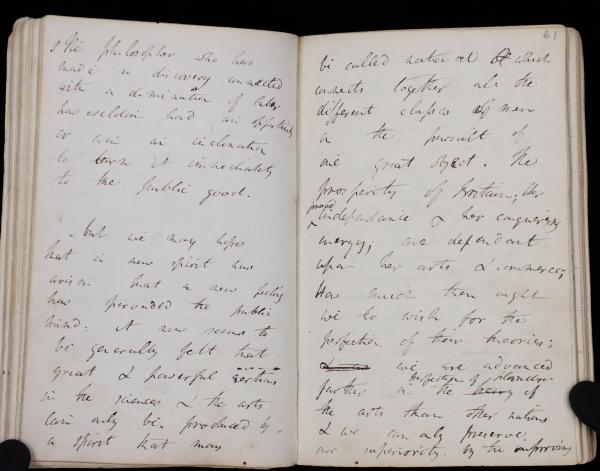 The philosopher who has
made a discovery connected
with a diminution of labor
has seldom had an opportunity
or even an inclination
to turn it immediately
to the public good.
but we may hope
that a new spirit has
arisen that a new feeling
has pervaded the public
mind; it now seems to
be generally felt that
great & powerful exertions
in the sciences & the arts
can only be produced by
a spirit that may
61
be called national & which
connects together all the
different classes of men
in the pursuit of
one great object. The
prosperity of Britain; her
proud
independance & her conquering
energy; are dependant
upon her arts & commerce;
How much then ought
we to wish for the
perfection of their theories;
we are advanced
perfection of
farther in the theory of
the arts than other nations
& we can only preserve
our superiority by the improving